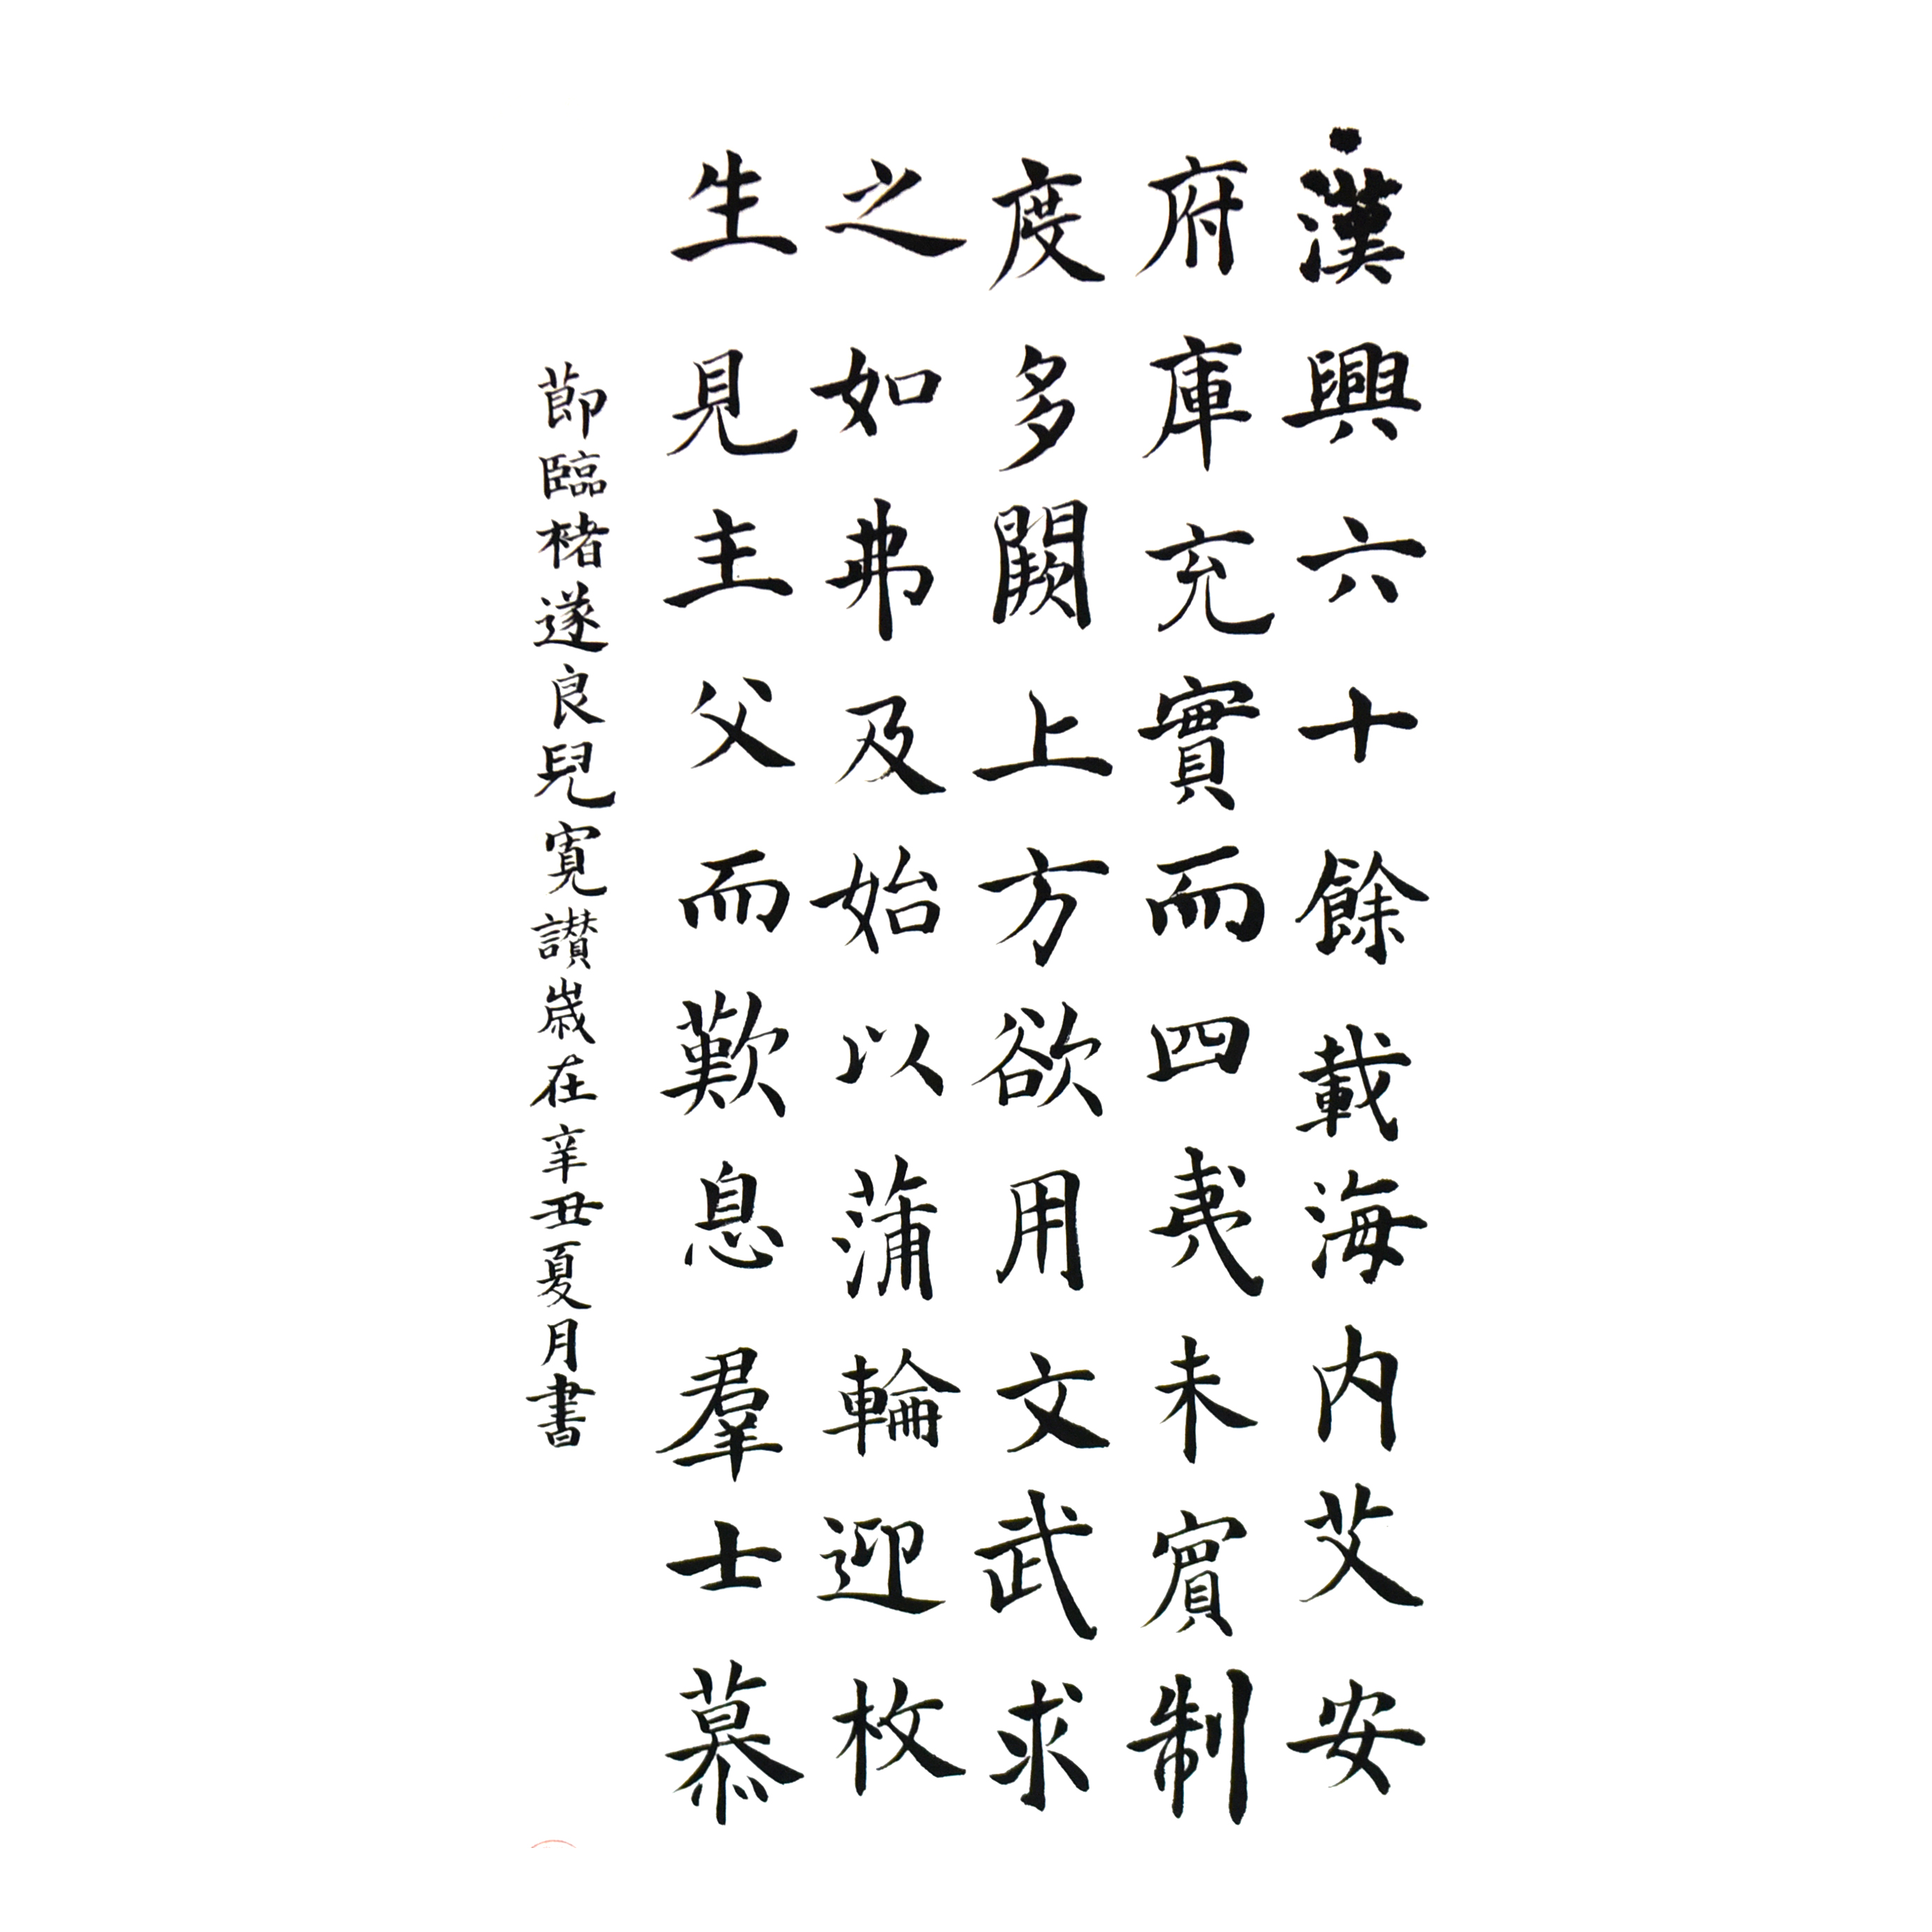 漢興六十餘載海内艾安
府庫充實而四夷未賓制
度多闕上方欲用文武求
之如弗及始以蒲輪迎枚
生見主父而歎息羣士慕
節臨褚遂良兒寬讃歲在辛丑夏月書